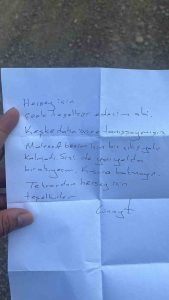 Herşey için
çok teşekkür ederim abi.
Keşke daha önce tanışsaydık
Malesef benim için bir çıkış yolu
kalmadı Sizi de yarı yolda
bıraktım. Kusura bakmayın.
Tekrardan herşey için
teşekkürler
Cüneyt